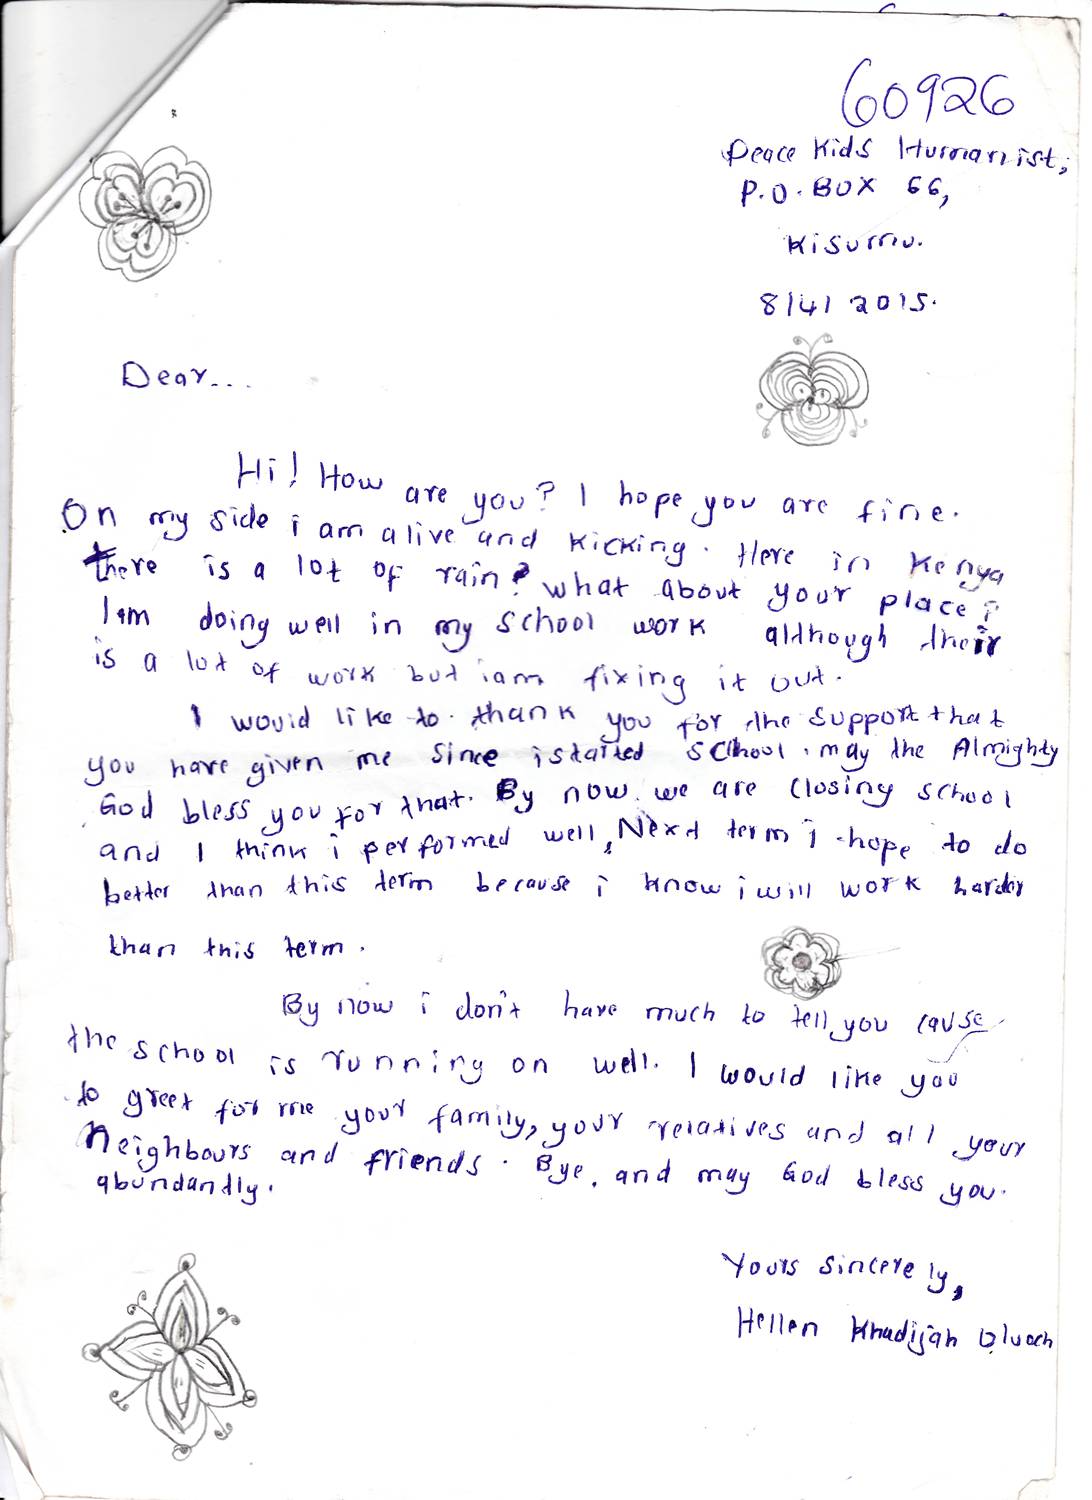 60926
Peace Kids Humanist,
P.O. BOX 66,
Kisumu.
8/4/2015.
Dear...
Hi! How are you? I hope you are fine.
On my side i am alive and kicking. Here in Kenya
there is a lot of rain? what about your place?
I am doing well in my school work although their
is a lot of work but iam fixing it out.
I would like to thank you for the support that
you have given me since istarted school. may the Almighty
God bless you for that. By now we are closing school
and I think i performed well, Next term i hope to do
better than this term because i know i will work harder
than this term.
By now i don't have much to tell you cause
the school is running on well. I would like you
to greet for me your family, your relatives and all your
neighbours and friends. Bye, and may God bless you
abundantly.
Yours sincerely,
Hellen Khadijah Oluoch